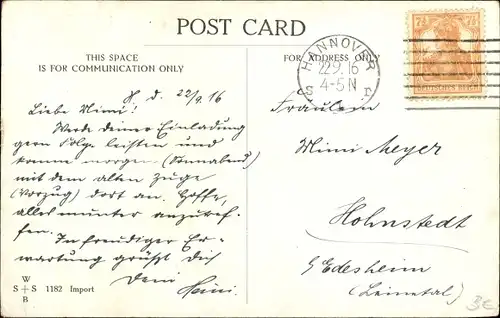 POST CARD
THIS SPACE
IS FOR COMMUNICATION ONLY
FOR ADDRESS ONLY
HANNOVER
22.9.16
4-5 N
7½ 7½
DEUTSCHES REICH
H. d. 22/9.16
Liebe Mimi!
Werde deiner Einladung
gern Folge leisten und
komme morgen (Sonnabend)
mit dem alten Zuge
(Vorzug) dort an. Hoffe,
alles munter anzutref-
fen.
In freudiger Er-
wartung grüßt Dich
Dein
Heini.
Fräulein
Mimi Meyer
Hohnstedt
b/ Edesheim
(Leinetal)
W
S + S 1182 Import
B